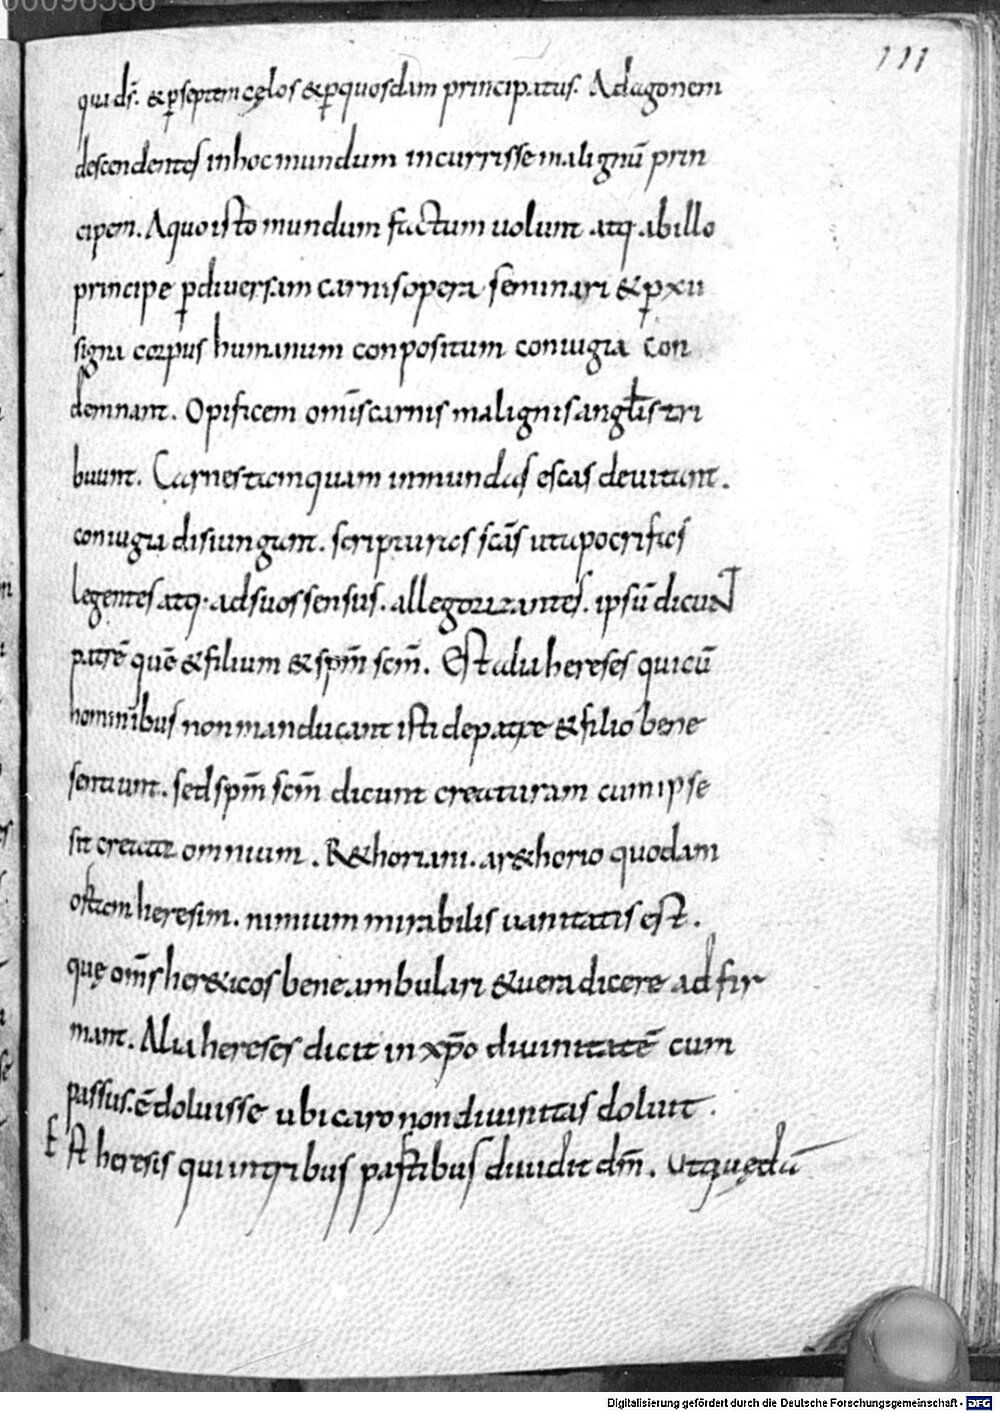 00096536
111
qui dſ̄. & ꝑ septem cęlos & ꝑ quosdam principatus. Ad agonem
descendentes in hoc mundum incurrisse malignū prin
cipem. A quo isto mundum factum uolunt atq· ab illo
principe ꝑ diuersam carnis opera seminari & ꝑ xii
signa corpus humanum conpositum coniugia con
demnant. Opificem om̄is carnis malignis angłis tri
buunt. Carnes tamquam inmundas escas deuitant.
coniugia disiungunt. scripturas scās ut apocrifas
legentes atq· ad suos sensus. allegorizantes. ipsū dicunt
patrē quē & filium & spm̄ scm̄. Est alia hereses qui cū
hominibus non manducant isti de patre & filio bene
sentiunt. sed spm̄ scm̄ dicunt creaturam cum ipse
sit creator omnium. R&horiani. a r&horio quodam
ostiam heresim. nimium mirabilis uanitatis est.
quę om̄s her&icos bene ambulari & uera dicere adfir
mant. Alia hereses dicit in xp̄o diuinitatē cum
passus. ē doluisse ubi caro non diuinitas doluit.
Est heresis qui in tribus partibus diuidit dm̄. Ut quędā
Digitalisierung gefördert durch die Deutsche Forschungsgemeinschaft - DFG